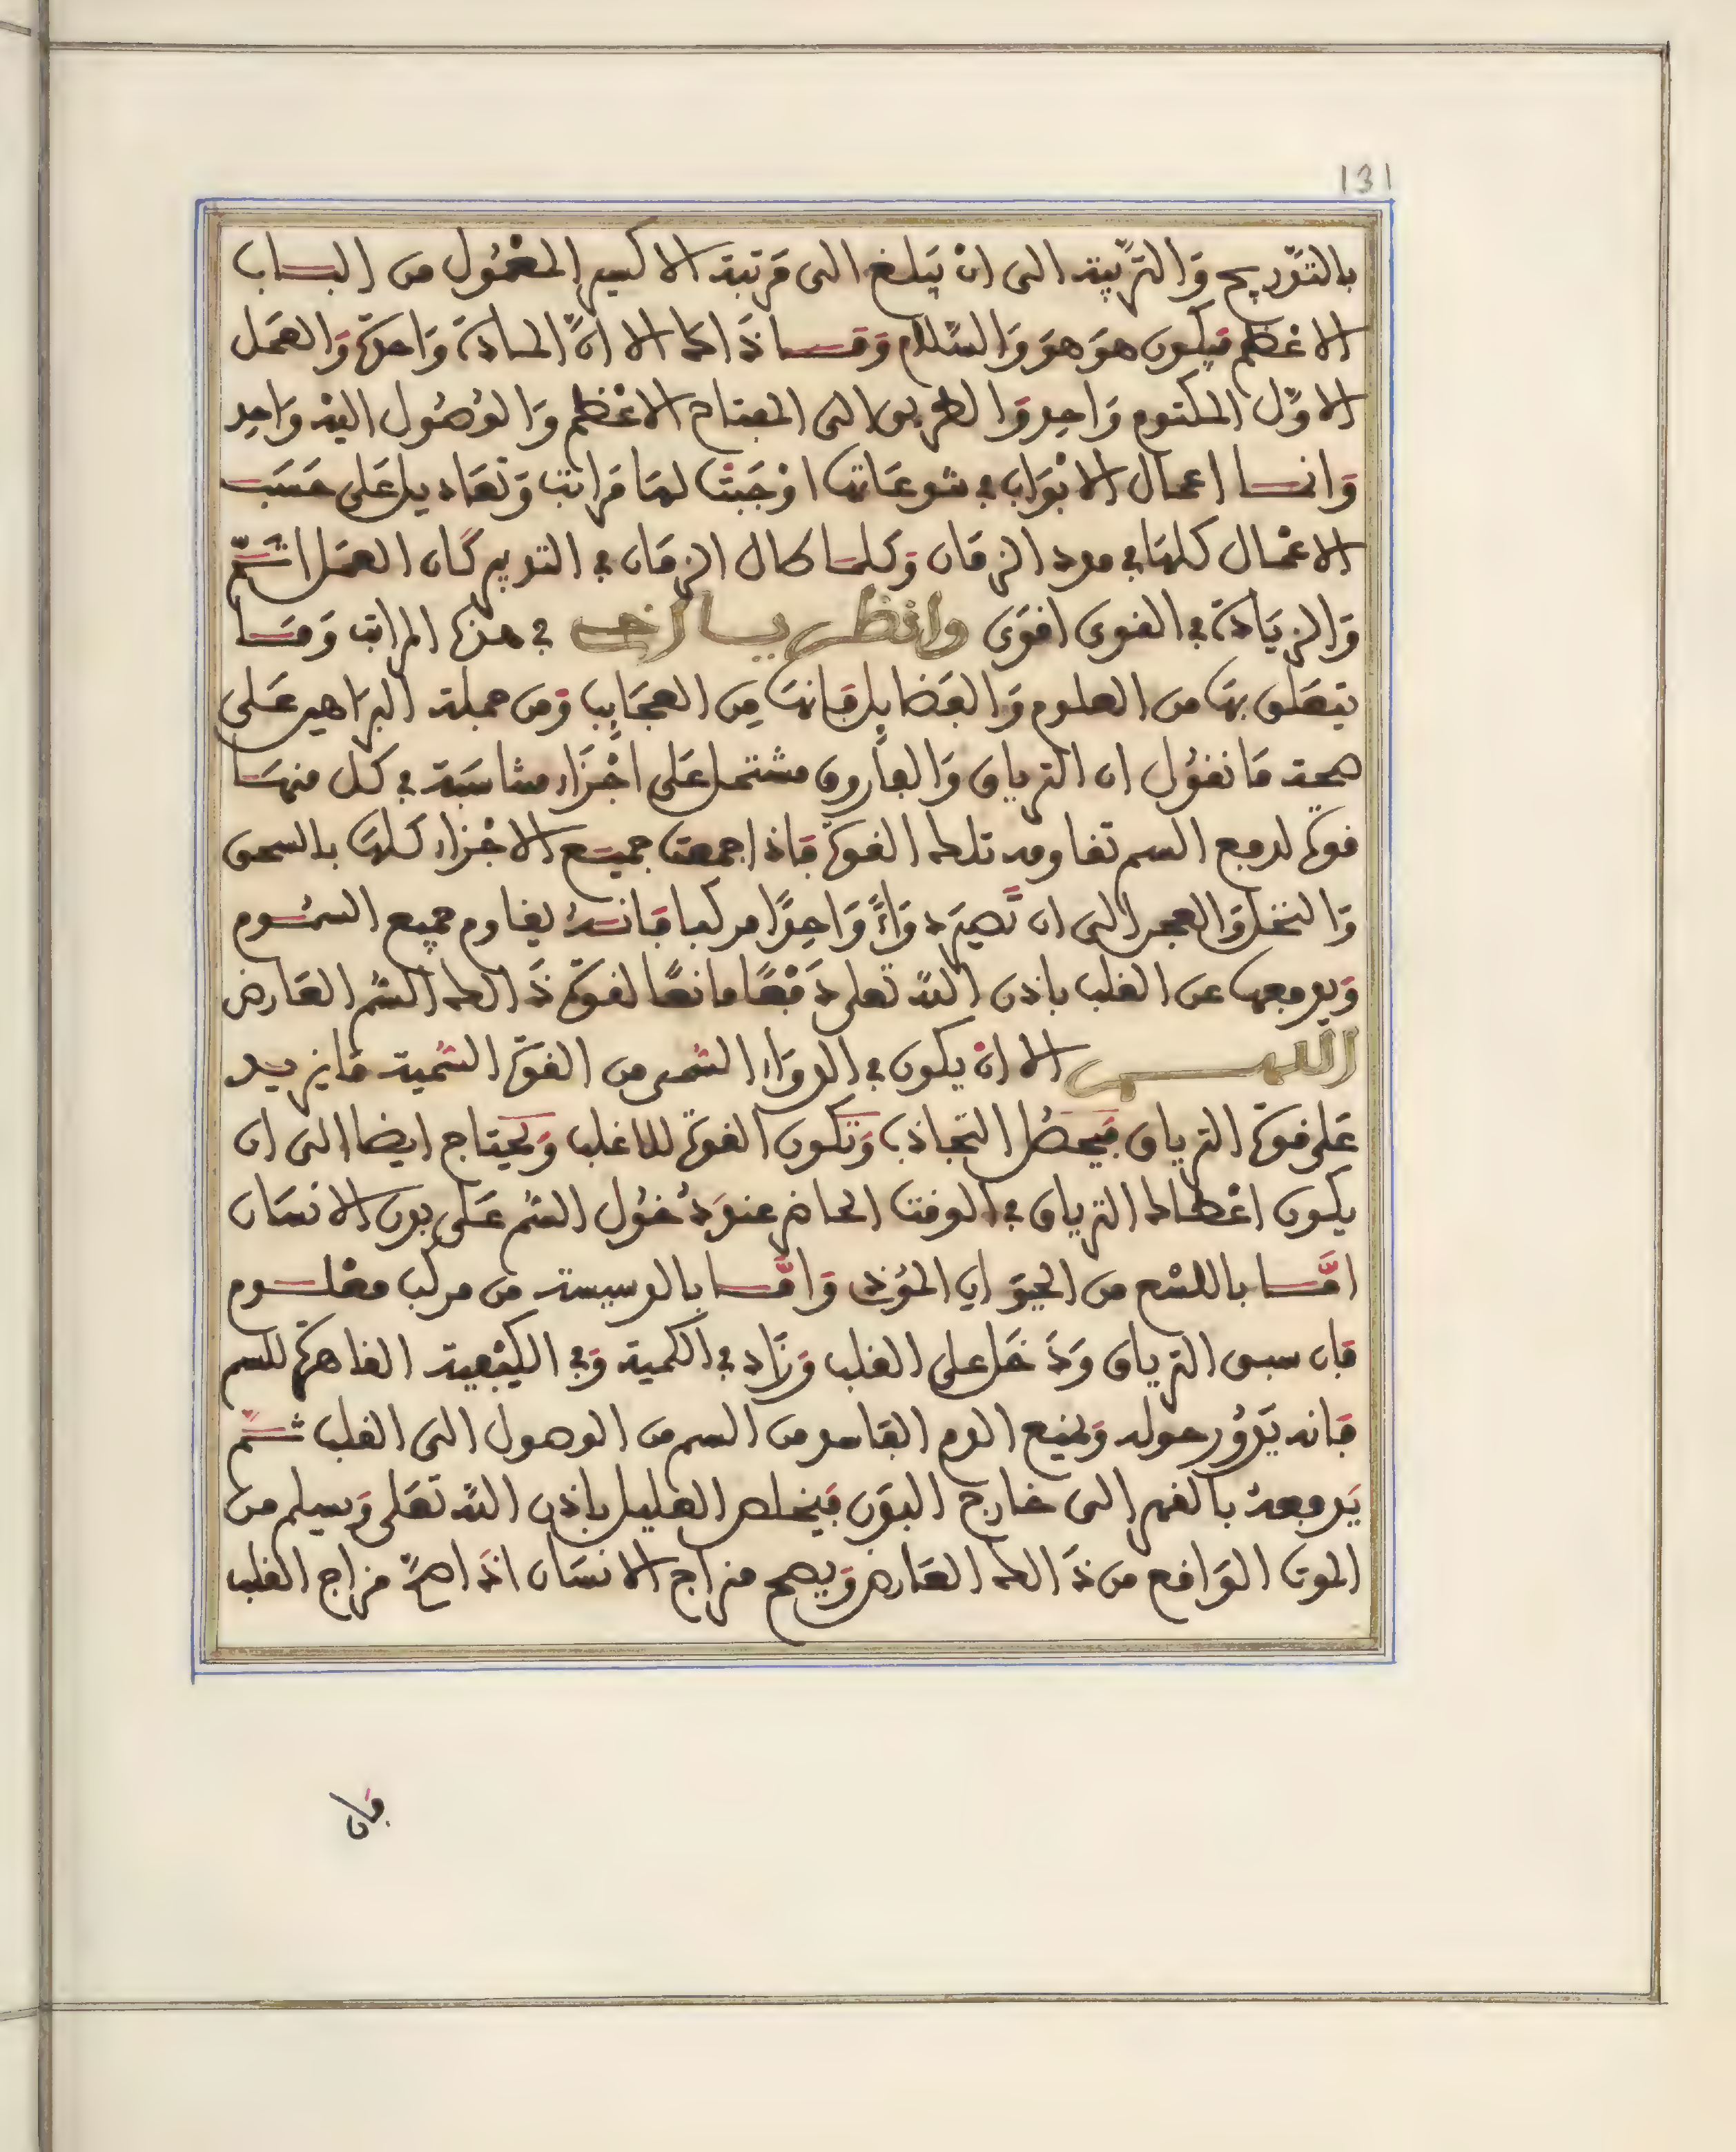 131
بالتدريج والتربية الى ان يبلغ الى مرتبة الاكسير المعمول من الباب
الاعظم فيكون هو هو والسلام وما ذاك الا ان المادة واحدة والعمل
الاول المكتوم واحد والطريق الى المفتاح الاعظم والوصول اليه واحد
وانما اعمال الابواب في تنوعاتها اوجبت لها مراتب وتعاديل على حسب
الاعمال كلها في مدد الزمان وكلما طال الزمان في التدبير كان العمل اتم
والزيادة في القوى اقوى وانظر يا اخي في هذه المراتب وما
يتعلق بها من العلوم والفضايل فانها من العجايب ومن جملة البراهين على
صحة ما نقول ان الترياق والفاروق مشتمل على اجزاء متناسبة في كل منها
قوة لدفع السم تقاومه تلك القوة فاذا جمعت جميع الاجزاء كلها بالسحق
والنخل والعجن الى ان تصير دواءً واحدًا مركبا فانه يقاوم جميع السموم
ويدفعها عن القلب باذن الله تعلى دفعًا مانعًا لقوة ذالك السم العارض
اللهم الا ان يكون في الدواء السمى من القوة السمية ما يزيد
على قوة الترياق فيحصل التجاذب وتكون القوة للاغلب ويحتاج ايضا الى ان
يكون اعطاء الترياق في الوقت الحاضر عند دخول السم على بدن الانسان
اما باللسع من الحيوان المؤذي واما بالدسيسة من مركب معلوم
فان سبق الترياق ودخل على القلب وزاد في الكمية وفي الكيفية القاهرة للسم
فانه يدور حوله ويمنع الدم الفاسد من السم من الوصول الى القلب ثم
يدفعه بالقهر الى خارج البدن فيخلص العليل باذن الله تعلى ويسلم من
الموت الواقع من ذالك العارض ويصح مزاج الانسان اذا صح مزاج القلب
فان